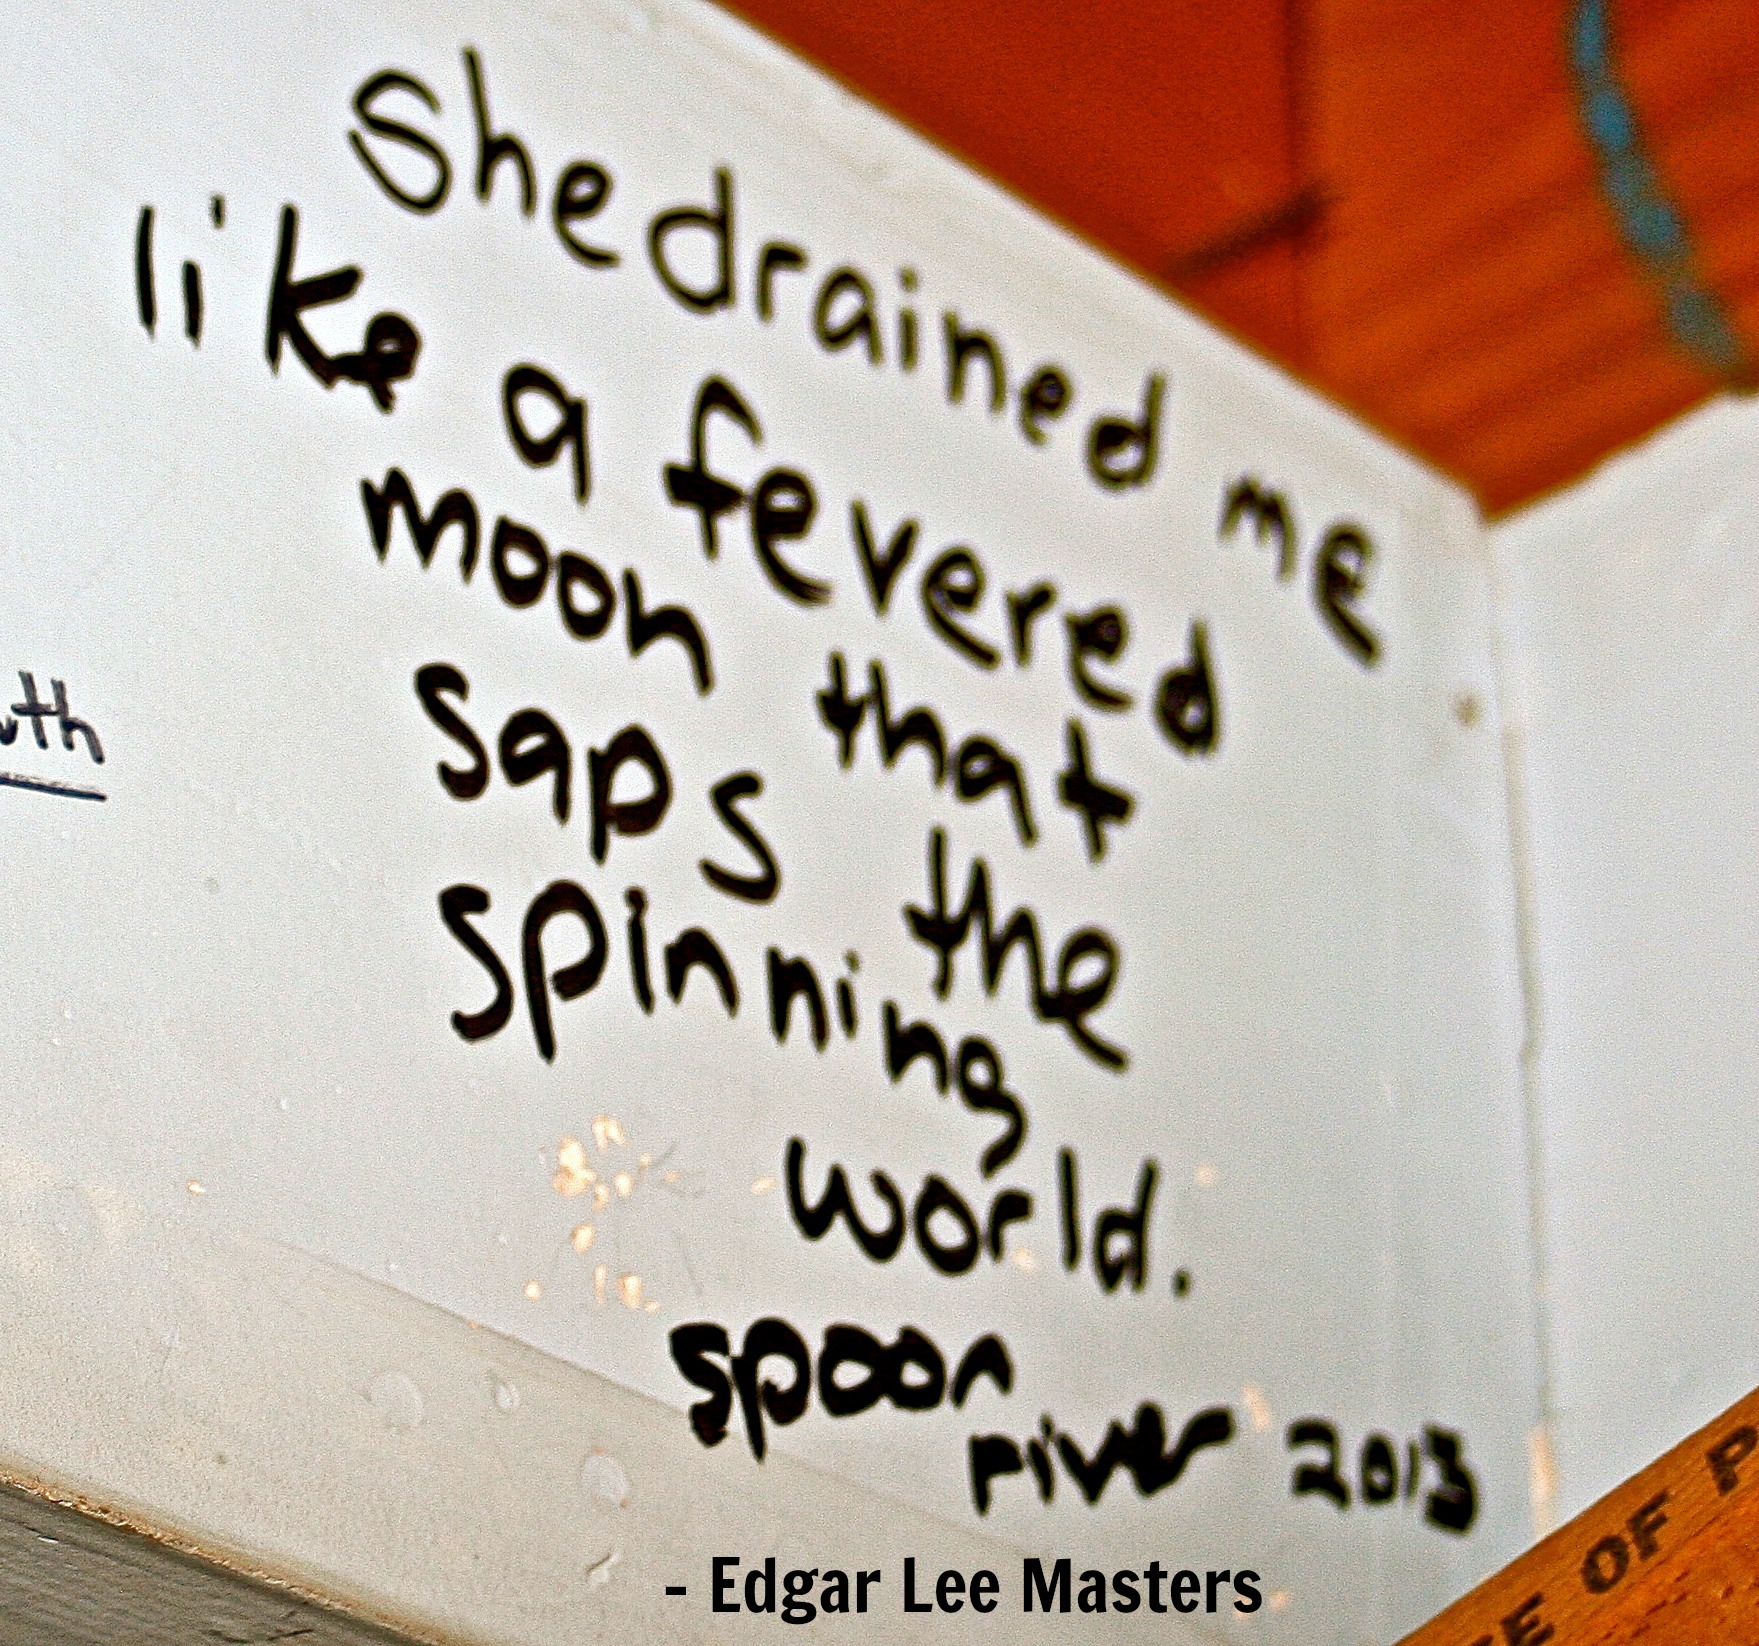 She drained me
like a fevered
moon that
saps the
spinning
world.
spoon
river 2013
- Edgar Lee Masters
OF